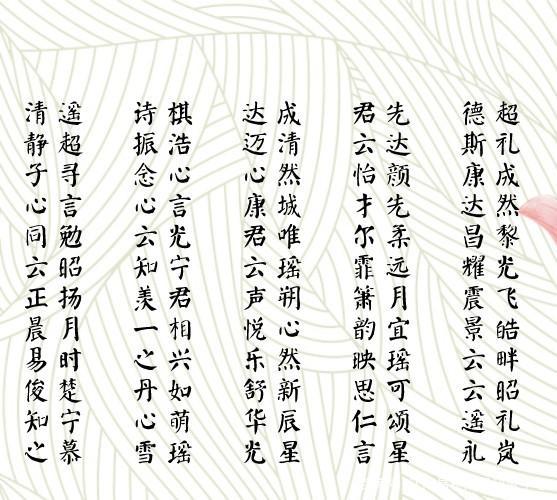 超礼成然黎光飞皓畔昭礼岚
德斯康达昌耀震景云云遥礼
先达颜先柔远月宜瑶可颂星
君云怡才尔霏箫韵映思仁言
成清然城唯瑶朔心然新辰星
达迈心康君云声悦乐舒华光
棋浩心言光宁君相兴如萌瑶
诗振念心云知羡一之丹心雪
遥超寻言勉昭扬月时楚宁慕
清静子心同云正晨易俊知之